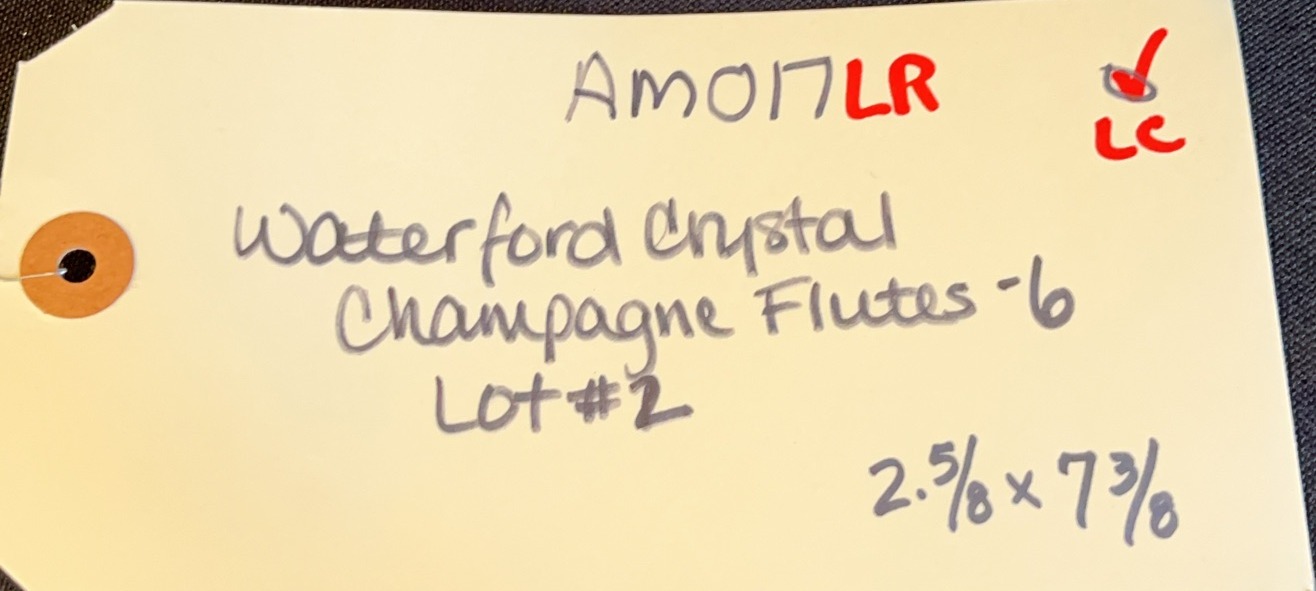 AM017LR ✓
LC
Waterford Crystal
Champagne Flutes -6
Lot #2
2.5/8 x 7 3/8